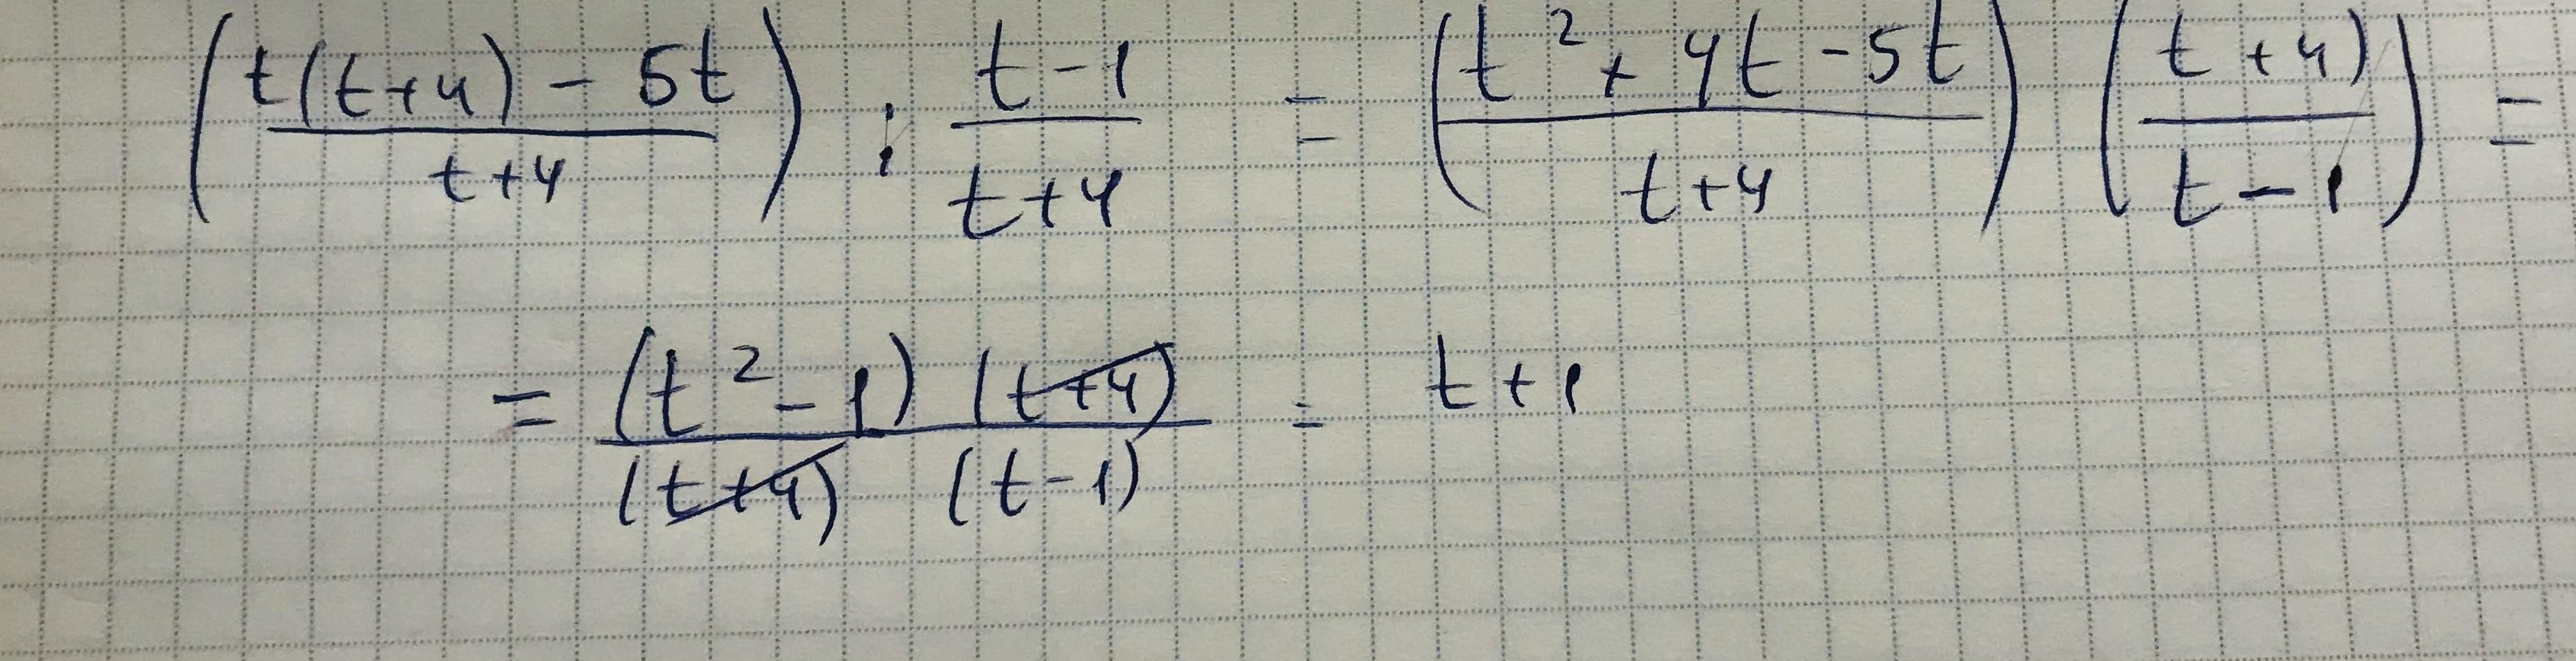 (t(t+4) - 5t / t+4) : t-1 / t+4 = (t² + 4t - 5t / t+4) (t+4) / t-1) =
= (t² - 1) (t+4) / (t+4) (t-1) = t+1